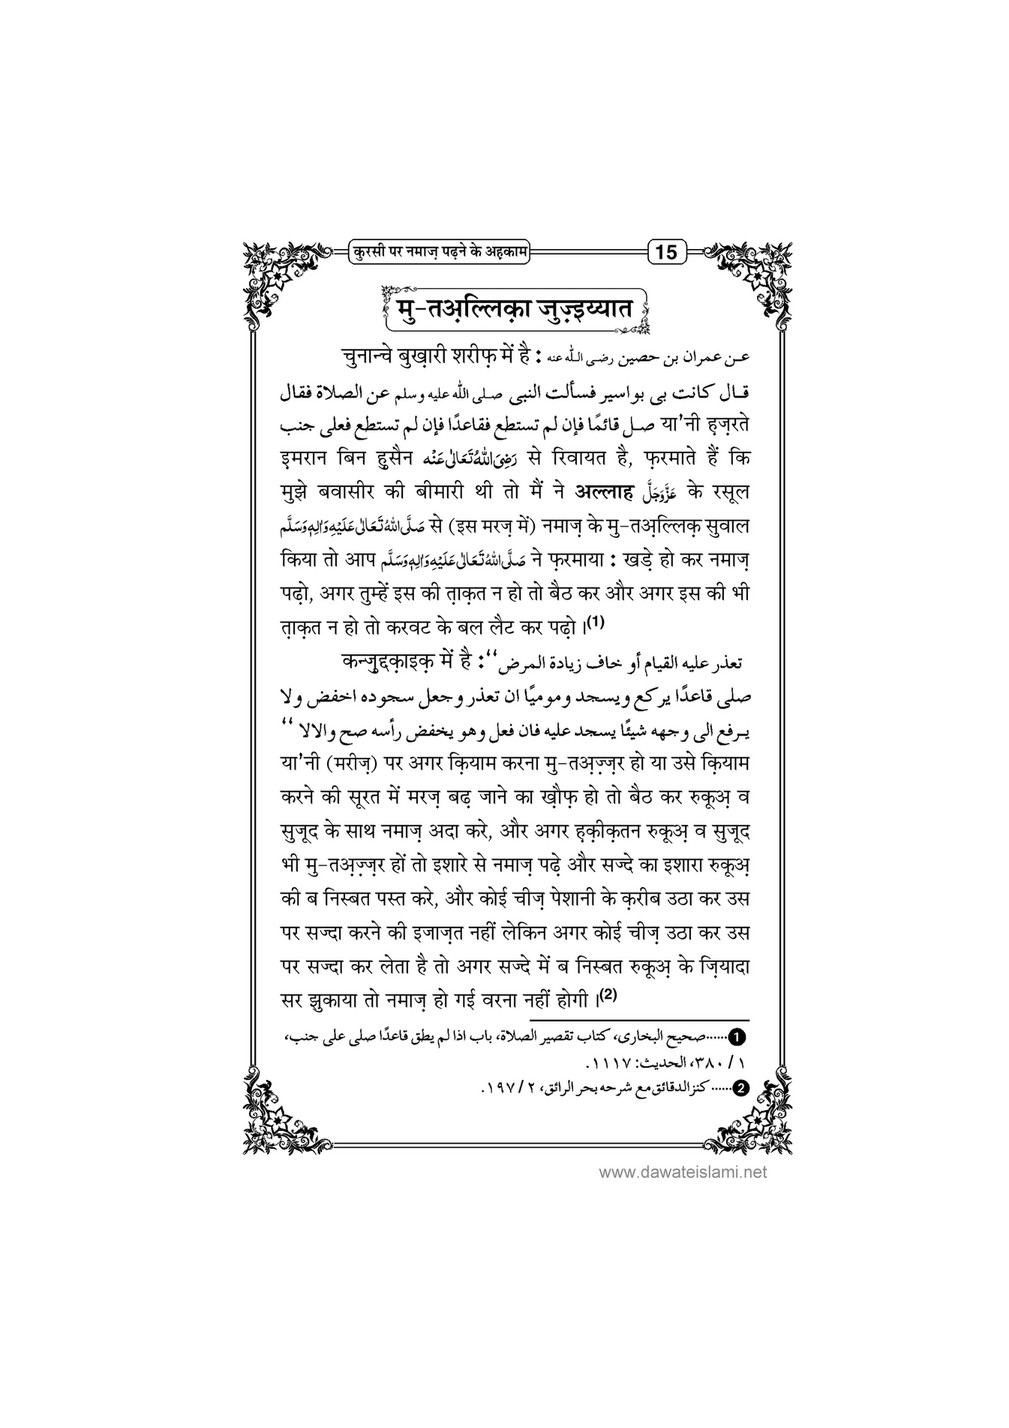 कुरसी पर नमाज़ पढ़ने के अह़काम 15
मु-तअ़ल्लिक़ा जुज़्इय्यात
चुनान्चे बुख़ारी शरीफ़ में है : عن عمران بن حصين رضى الله عنه
قال كانت بى بواسير فسألت النبى صلى الله عليه وسلم عن الصلاة فقال
صل قائمًا فإن لم تستطع فقاعدًا فإن لم تستطع فعلى جنب या'नी ह़ज़रते
इमरान बिन हुसैन رَضِیَ اللّٰهُ تَعَالٰی عَنْه से रिवायत है, फ़रमाते हैं कि
मुझे बवासीर की बीमारी थी तो मैं ने अल्लाह عَزَّوَجَلَّ के रसूल
صَلَّی اللّٰهُ تَعَالٰی عَلَیْهِ وَاٰلِهٖ وَسَلَّم से (इस मरज़ में) नमाज़ के मु-तअ़ल्लिक़ सुवाल
किया तो आप صَلَّی اللّٰهُ تَعَالٰی عَلَیْهِ وَاٰلِهٖ وَسَلَّم ने फ़रमाया : खड़े हो कर नमाज़
पढ़ो, अगर तुम्हें इस की त़ाक़त न हो तो बैठ कर और अगर इस की भी
त़ाक़त न हो तो करवट के बल लैट कर पढ़ो ।(1)
कन्ज़ुद्दक़ाइक़ में है : “تعذر عليه القيام أو خاف زيادة المرض
صلى قاعدًا يركع ويسجد وموميًا ان تعذر وجعل سجوده اخفض ولا
يرفع الى وجهه شيئًا يسجد عليه فان فعل وهو يخفض رأسه صح والالا “
या'नी (मरीज़) पर अगर क़ियाम करना मु-तअ़ज़्ज़र हो या उसे क़ियाम
करने की सूरत में मरज़ बढ़ जाने का ख़ौफ़ हो तो बैठ कर रुकूअ़ व
सुजूद के साथ नमाज़ अदा करे, और अगर ह़क़ीक़तन रुकूअ़ व सुजूद
भी मु-तअ़ज़्ज़र हों तो इशारे से नमाज़ पढ़े और सज्दे का इशारा रुकूअ़
की ब निस्बत पस्त करे, और कोई चीज़ पेशानी के क़रीब उठा कर उस
पर सज्दा करने की इजाज़त नहीं लेकिन अगर कोई चीज़ उठा कर उस
पर सज्दा कर लेता है तो अगर सज्दे में ब निस्बत रुकूअ़ के ज़ियादा
सर झुकाया तो नमाज़ हो गई वरना नहीं होगी ।(2)
1......صحيح البخارى، كتاب تقصير الصلاة، باب اذا لم يطق قاعدًا صلى على جنب،
١/ ٣٨٠، الحديث: ١١١٧.
2......كنز الدقائق مع شرحه بحر الرائق، ٢/ ١٩٧.
www.dawateislami.net